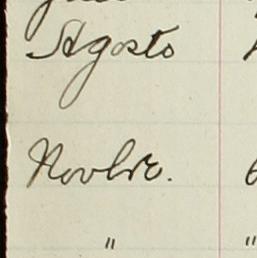 Agosto
Novbre.
" "